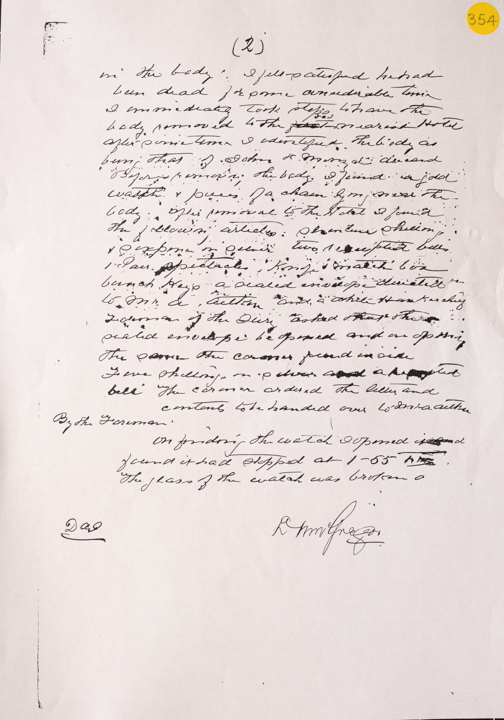 354
(2)
in the body. I felt satisfied he had
been dead for some considerable time
I immediately took steps to have the
body removed to the nearest Hotel
after some time I identified the body as
being that of John deceased
Before removing the body I found a gold
watch & piece of a chain lying near the
body. after removal to the Hotel I found
the following articles. seventeen shillings
& sixpence in silver two receipted bills
1 Pair spectacles, Knife, match box
bunch Keys a sealed envelope directed
to Mr. and a white Handkerchief
Foreman of the Jury asked that the
sealed envelope be opened and on opening
the same the coroner found inside
shillings in silver and a receipted
bill The coroner ordered the letter and
contents to be handed over to
By the Foreman.
on finding the watch I opened it and
found it had stopped at 1-55
The glass of the watch was broken
McGregor